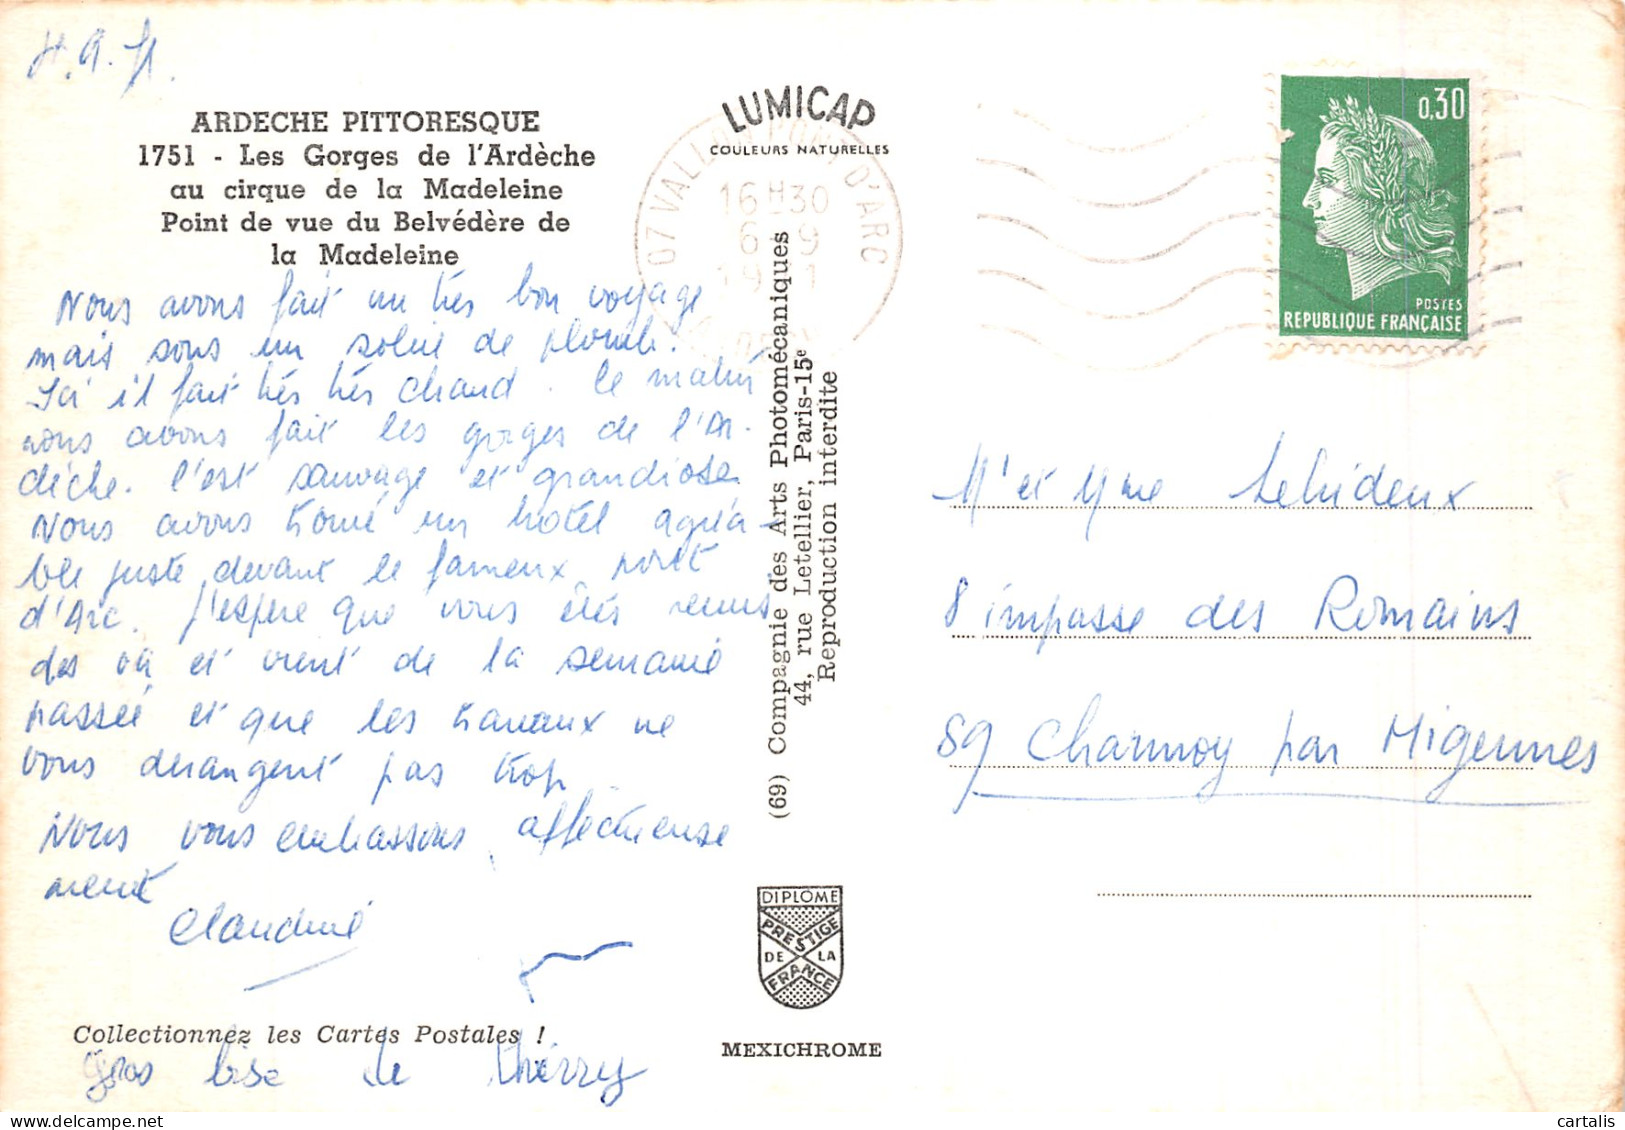 H.A.H.
ARDECHE PITTORESQUE
1751 - Les Gorges de l'Ardèche
au cirque de la Madeleine
Point de vue du Belvédère de
la Madeleine
Nous avons fait un très bon voyage
mais sous un soleil de plomb.
Ici il fait très très chaud. Ce matin
nous avons fait les gorges de l'Ar-
dèche. C'est sauvage et grandiose
Nous avons trouvé un hotel agréa-
ble juste devant le fameux pont
d'Arc. J'espère que vous êtes remis
des va et vient de la semaine
passée et que les travaux ne
vous dérangent pas trop
Nous vous embrassons affectueuse
ment
Claudine
Collectionnez les Cartes Postales !
Gros bise de Thierry
LUMICAP
COULEURS NATURELLES
07 VALLON PONT D'ARC
16H30
6 - 9
19 1
(69) Compagnie des Arts Photomécaniques
44, rue Letellier, Paris-15e
Reproduction interdite
DIPLOME
PRESTIGE
DE LA
FRANCE
MEXICHROME
0,30
POSTES
REPUBLIQUE FRANÇAISE
Mr et Mme Lehideux
8 impasse des Romains
89 Charmoy par Migennes
cartalis